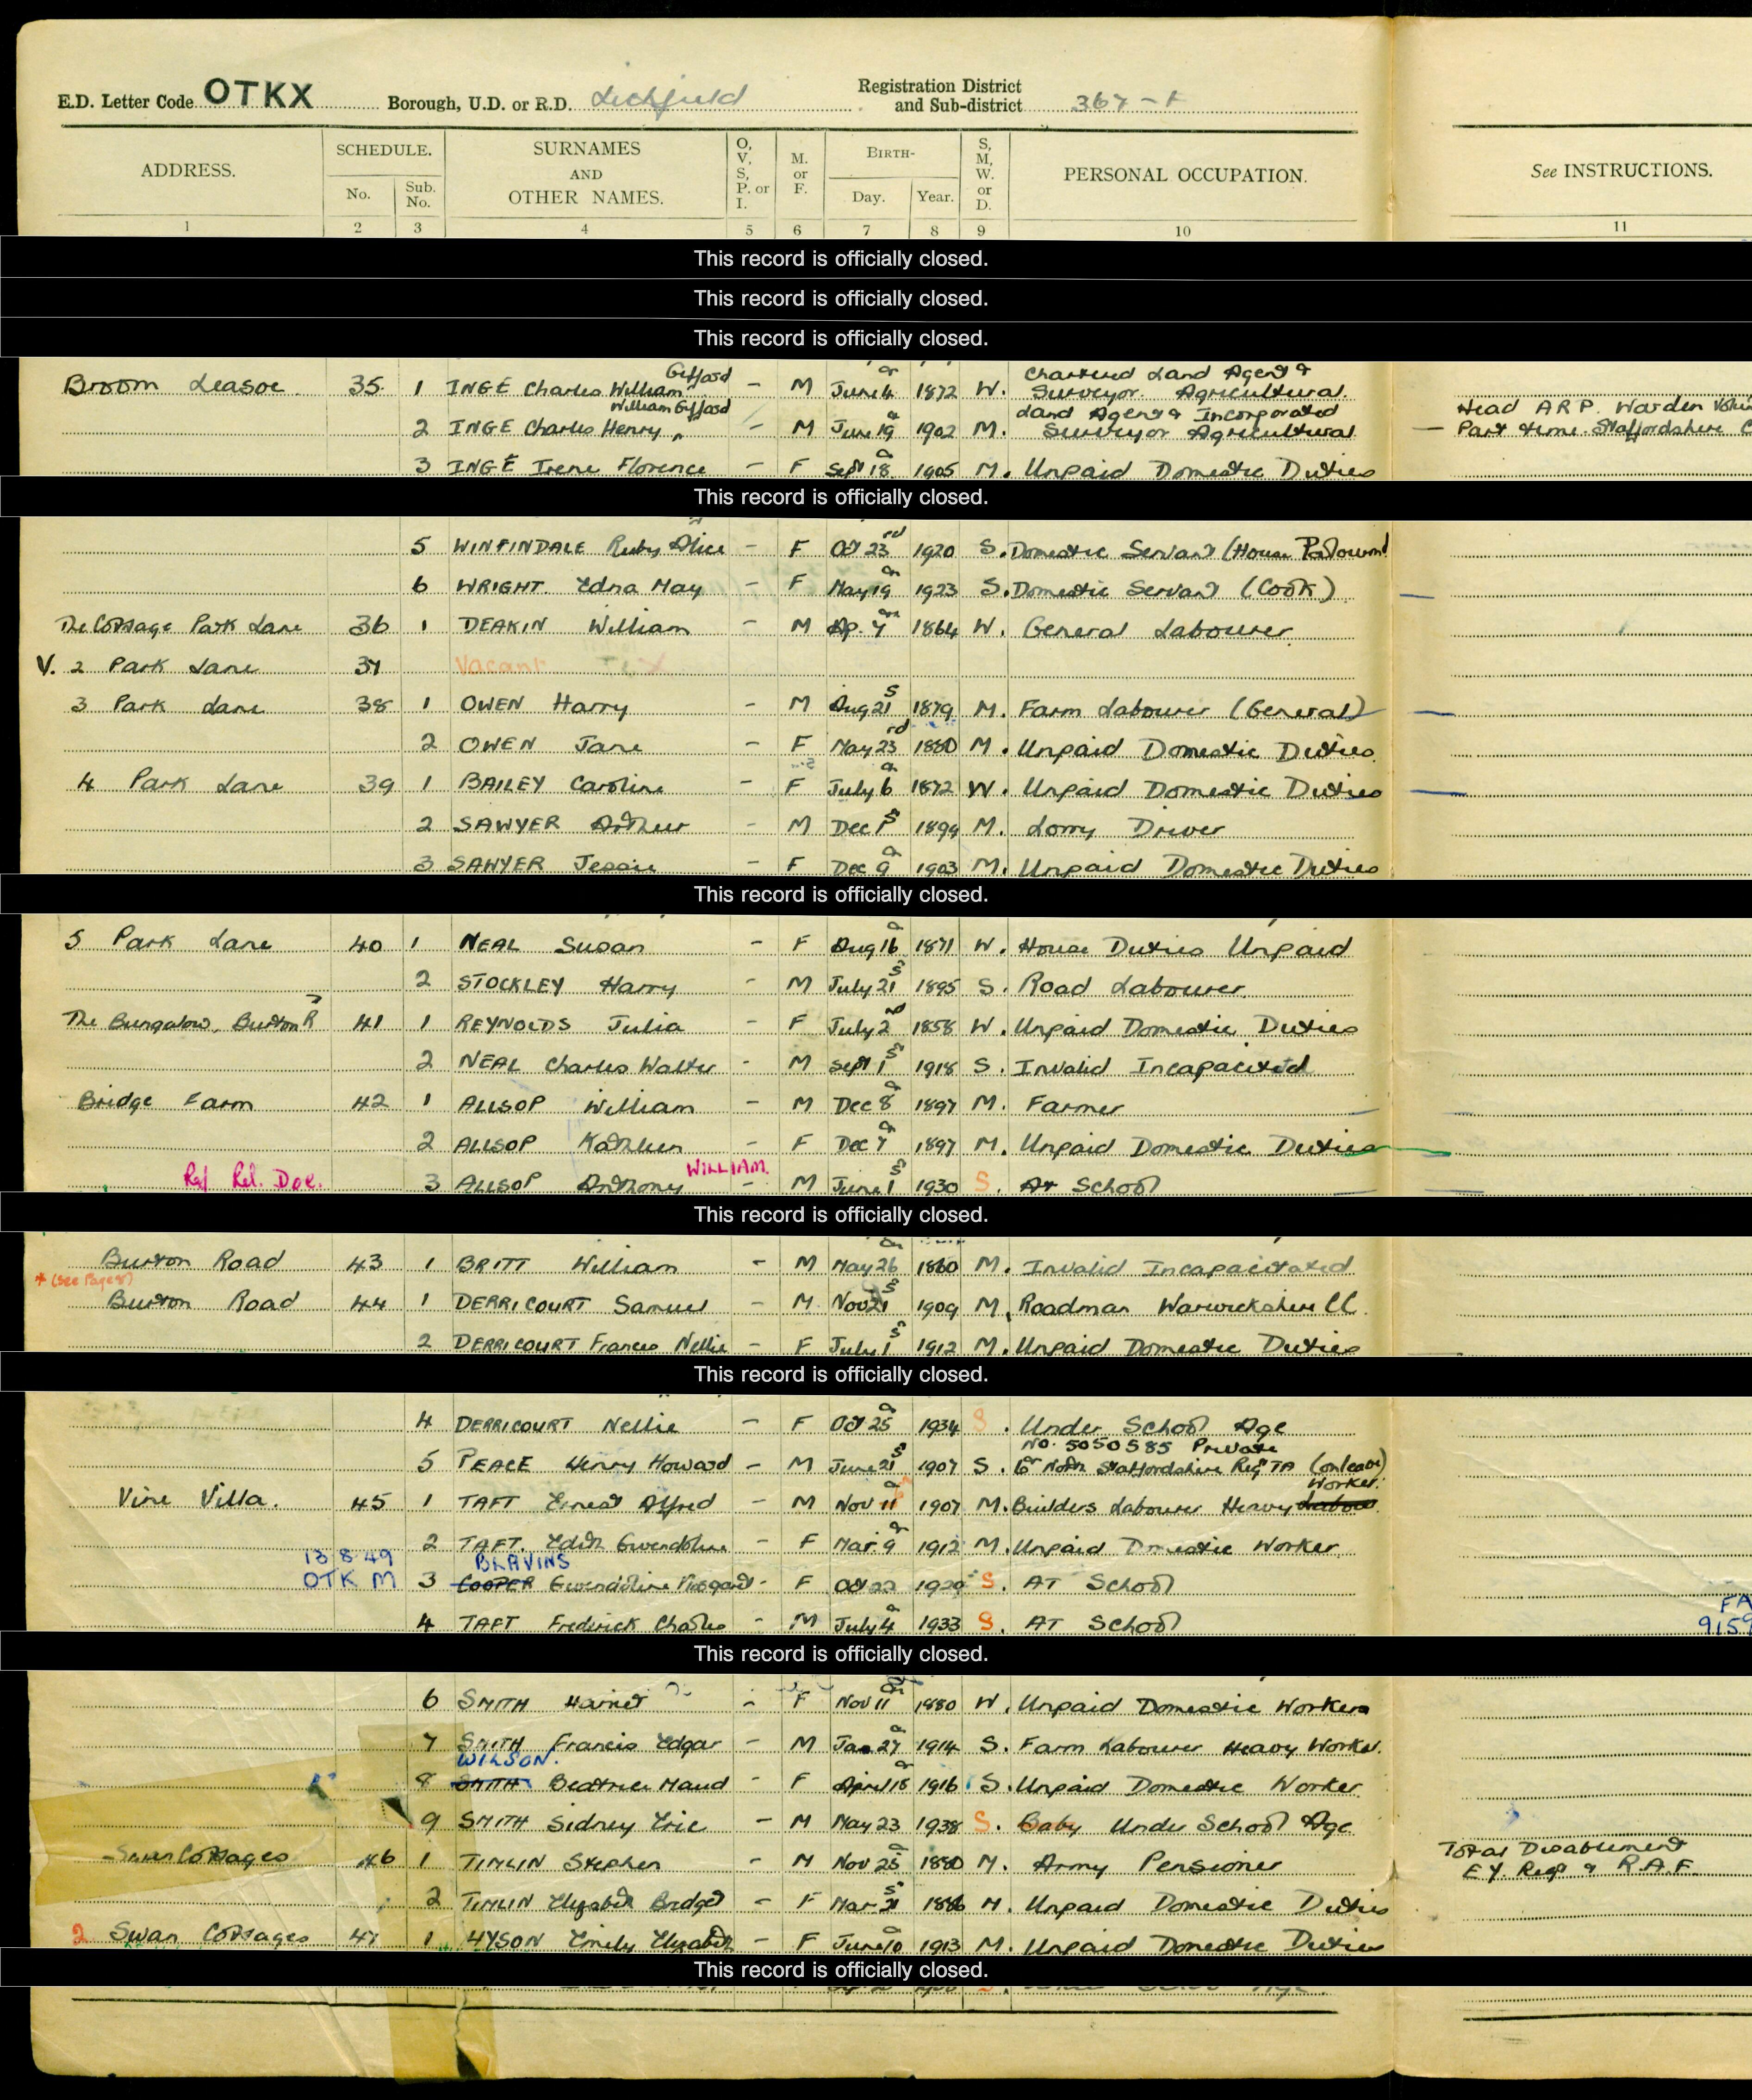 E.D. Letter Code OTKX Borough, U.D. or R.D. Lichfield Registration District and Sub-district 367-1
ADDRESS. SCHEDULE. No. Sub. No. SURNAMES AND OTHER NAMES. O, V, S, P. or I. M. or F. BIRTH- Day. Year. S, M, W. or D. PERSONAL OCCUPATION. See INSTRUCTIONS.
1 2 3 4 5 6 7 8 9 10 11
This record is officially closed.
This record is officially closed.
This record is officially closed.
Gifford Chartered Land Agent &
Broom Leasoe 35 1 INGE Charles William - M June 4 1872 W. Surveyor Agricultural.
William Gifford Land Agent & Incorporated Head A R P Warden
2 INGE Charles Henry " - M June 19 1902 M. Surveyor Agricultural — Part time. Staffordshire C
3 INGE Irene Florence - F Sept 18 1905 M. Unpaid Domestic Duties
This record is officially closed.
5 WINFINDALE Ruby Alice - F Oct 23rd 1920 S. Domestic Servant (House
6 WRIGHT Edna May - F May 19 1923 S. Domestic Servant (Cook)
The Cottage Park Lane 36 1 DEAKIN William - M Ap. 7 1864 W. General Labourer
V. 2 Park Lane 37 Vacant
3 Park Lane 38 1 OWEN Harry - M Aug 21 S 1879 M. Farm Labourer (General)
2 OWEN Jane - F May 23rd 1880 M. Unpaid Domestic Duties
4 Park Lane 39 1 BAILEY Caroline - F July 6 1872 W. Unpaid Domestic Duties
2 SAWYER Arthur - M Dec 1 S 1894 M. Lorry Driver
3 SAWYER Jessie - F Dec 9 1903 M. Unpaid Domestic Duties
This record is officially closed.
5 Park Lane 40 1 NEAL Susan - F Aug 16 1871 W. House Duties Unpaid
2 STOCKLEY Harry - M July 21 S 1895 S. Road Labourer
The Bungalow, Burton R 41 1 REYNOLDS Julia - F July 2nd 1858 W. Unpaid Domestic Duties
2 NEAL Charles Walter - M Sept 1 S 1918 S. Invalid Incapacited
Bridge Farm 42 1 ALLSOP William - M Dec 8 1897 M. Farmer
2 ALLSOP Kathleen - F Dec 7 1897 M. Unpaid Domestic Duties
WILLIAM.
Ref Rel. Doc. 3 ALLSOP Anthony - M June 1 S 1930 S. At School
This record is officially closed.
Burton Road 43 1 BRITT William - M May 26 1860 M. Invalid Incapacitated
* (See Page 8)
Burton Road 44 1 DERRICOURT Samuel - M Nov 21 S 1909 M. Roadman Warwickshire CC.
2 DERRICOURT Frances Nellie - F July 1 S 1912 M. Unpaid Domestic Duties
This record is officially closed.
4 DERRICOURT Nellie - F Oct 25 1934 S. Under School Age
No. 5050585 Private
5 PEACE Henry Howard - M June 21 S 1907 S. 6 North Staffordshire Regt TA (on leave)
Worker.
Vine Villa. 45 1 TAFT Ernest Alfred - M Nov 11 1907 M. Builders Labourer Heavy Labour
2 TAFT. Edith Gwendoline - F Mar. 9 1912 M. Unpaid Domestic Worker
13 8 49 BLAVINS
OTK M 3 COOPER Gwendoline - F Oct 22 1929 S. AT School
FA
4 TAFT Frederick Charles - M July 4 1933 S. AT School 915
This record is officially closed.
6 SMITH Harriet - F Nov 11 1880 W. Unpaid Domestic Workers
7 SMITH Francis Edgar - M Jan 27 1914 S. Farm Labourer Heavy Worker.
WILSON.
8 SMITH Beatrice Maud - F April 18 1916 S. Unpaid Domestic Worker
9 SMITH Sidney Eric - M May 23 1938 S. Baby Under School Age
Total Disablement
Swan Cottages 46 1 TIMLIN Stephen - M Nov 25 1880 M. Army Pensioner E.Y. Regt & R.A.F.
2 TIMLIN Elizabeth Bridget - F Mar 21 S 1886 M. Unpaid Domestic Duties
2 Swan Cottages 47 1 HYSON Emily Elizabeth - F June 10 1913 M. Unpaid Domestic Duties
This record is officially closed.